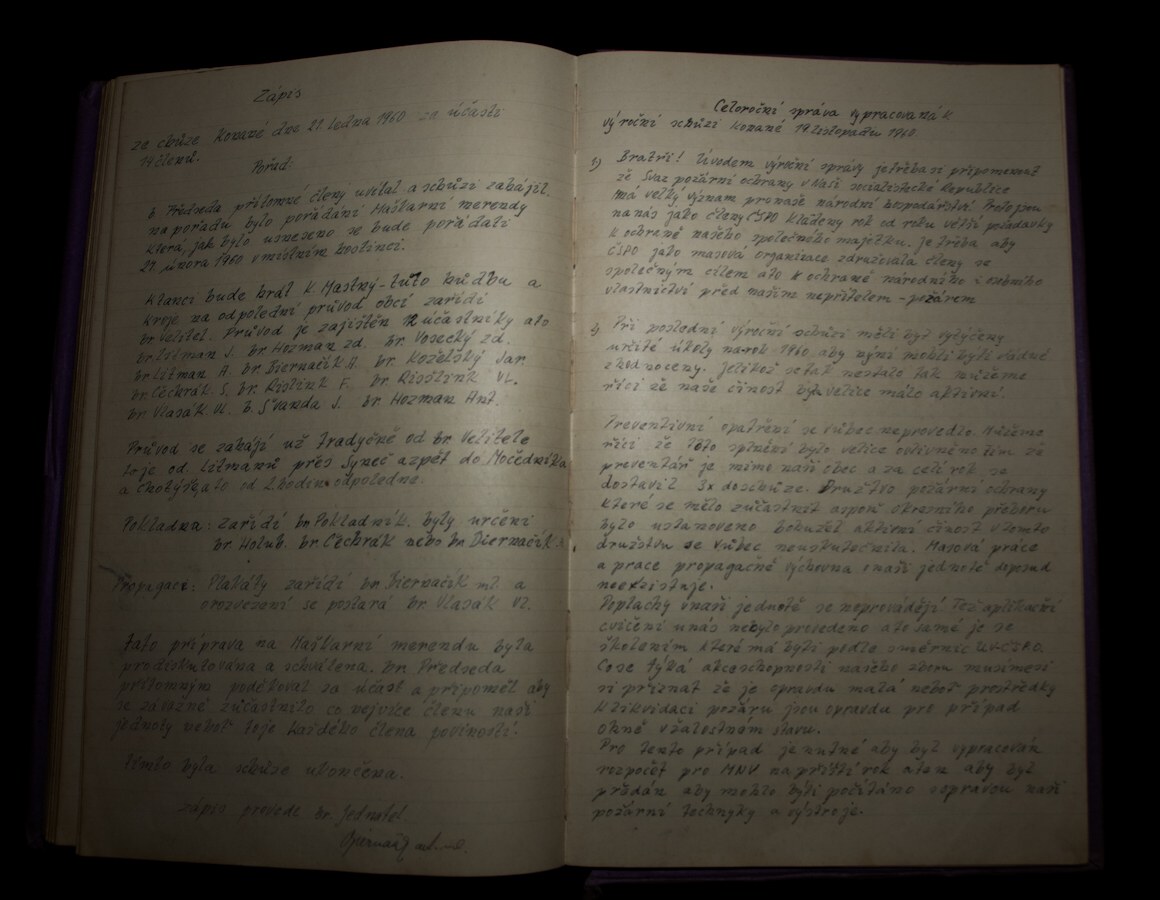 Zápis
ze chůze konané dne 21 ledna 1960 za účasti
19 členů.
Pořad:
b. Předseda přítomné členy uvítal a schůzi zahájil
na pořadu bylo pořádání Maškarní merendy
která, jak bylo usneseno se bude pořádati
27. února 1960 v místním hostinci.
K tanci bude hrát k. Mastný - tuto hudbu a
kroje na odpolední průvod obcí zařídí
br. Velitel. Průvod je zajištěn 12 účastníky ato
br. Litman J. br. Hozman zd. br. Vosecký zd.
br. Litman A. br. Biernačík A. br. Koželský Jar.
br. Čechrák. S. br. Rislink F. br. Risslink VL.
br. Vlasák. VL. b. Švanda J. br. Hozman Ant.
Průvod se zahájí už tradyčně od br. Velitele
to je od Litmanů přes Syneč azpět do Močedníka
a Chotýše ato od 2 hodin odpoledne.
Pokladna: Zařídí br. Pokladník. byly určeni
br. Holub. br. Čechrák nebo br. Biernačík
Propagace: Plakáty zařídí br. Biernačík ml. a
orozvezení se postará br. Vlasák Vl.
Tato příprava na Maškarní merendu byla
prodiskutována a schválena. br. Předseda
přítomným poděkoval za účast a připoměl aby
se závazně zúčastnilo co nejvíce členů naší
jednoty neboť toje každého člena povinností.
Tímto byla schůze ukončena.
zápis provede br. Jednatel.
Celoroční zpráva vypracovaná k
výroční schůzi konané 19 listopadu 1960.
1.) Bratři! Úvodem výroční zprávy jetřeba si připomenout
že Svaz požární ochrany v Naší socialistické Republice
má velký význam pronaše národní hospodářství. Proto jsou
na nás jako členy ČSPO kladeny rok od roku větší požadavky
k ochraně našeho společného majetku. Je třeba aby
ČSPO jako masová organizace združovala členy se
společným cílem ato k ochraně národního i osobního
vlastnictví před naším nepřítelem - požárem
Při poslední výroční schůzi měli být vytýčeny
určité úkoly na rok 1960 aby nýní mohli býti řádně
zhodnoceny. Jelikož se tak nestalo tak můžeme
říci že naše činost byla velice málo aktivní.
Preventivní opatření se vůbec neprovedlo. Můžeme
říci že toto splnění bylo velice ovlivněno tím že
preventář je mimo naši obec a za celí rok se
dostavil 3x do schůze. Družstvo požární ochrany
které se mělo zúčastnit aspoň okresního přeboru
bylo ustanoveno bohužel aktivní činost v tomto
družstvu se vůbec neuskutečnila. Masová práce
a práce propagačně výchovna vnaší jednotě doposud
neexistuje.
Poplachy vnaší jednotě se neprovádějí Též aplikační
cvičení unás nebylo provedeno ato samé je se
školením které má býti podle směrnic ÚV-ČSPO.
Co se týká akceschopnosti našeho sboru musímesi
si přiznat že je opravdu malá neboť prostředky
k likvidaci požáru jsou opravdu pro případ
ohně v žalostném stavu.
Pro tento případ je nutné aby byl vypracován
rozpočet pro MNV na příští rok aten aby byl
předán aby mohlo býti počítáno sopravou naší
požární technyky a výstroje.